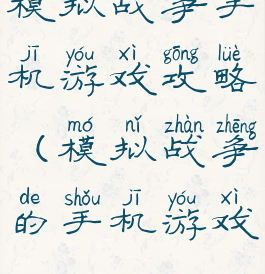 模拟战争手
jī yóu xì gōng lüè
机游戏攻略
mó nǐ zhàn zhēng
(模拟战争
de shǒu jī yóu xì
的手机游戏